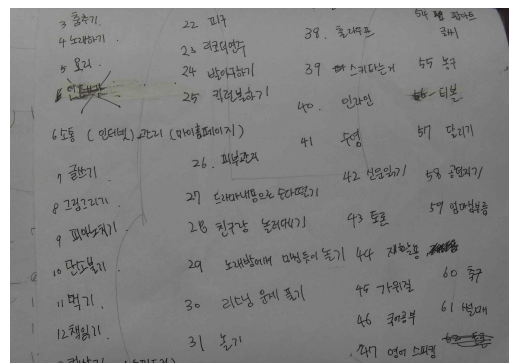 3 춤추기.
4 노래하기
5 요리
6 소통 (인터넷) 관리 (마이홈페이지)
7 글쓰기
8 그림그리기
9 피아노치기
10 단소불기
11 먹기
12 책읽기
22 피구
23 리코더연주
24 받아쓰기하기
25 컬러복하기
26. 피부관리
27 드라마내용으로 수다떨기
28 친구랑 놀러다니기
29 노래방에서 미친듯이 놀기
30 리스닝 문제 풀기
31 놀기
38. 훌라후프
39 스키타는거
40. 인라인
41 수영
42 신문읽기
43 토론
44 재활용
45 가위질
46 국어공부
47 영어 스피킹
55 농구
티볼
57 달리기
58 공던지기
59 엄마심부름
60 축구
61